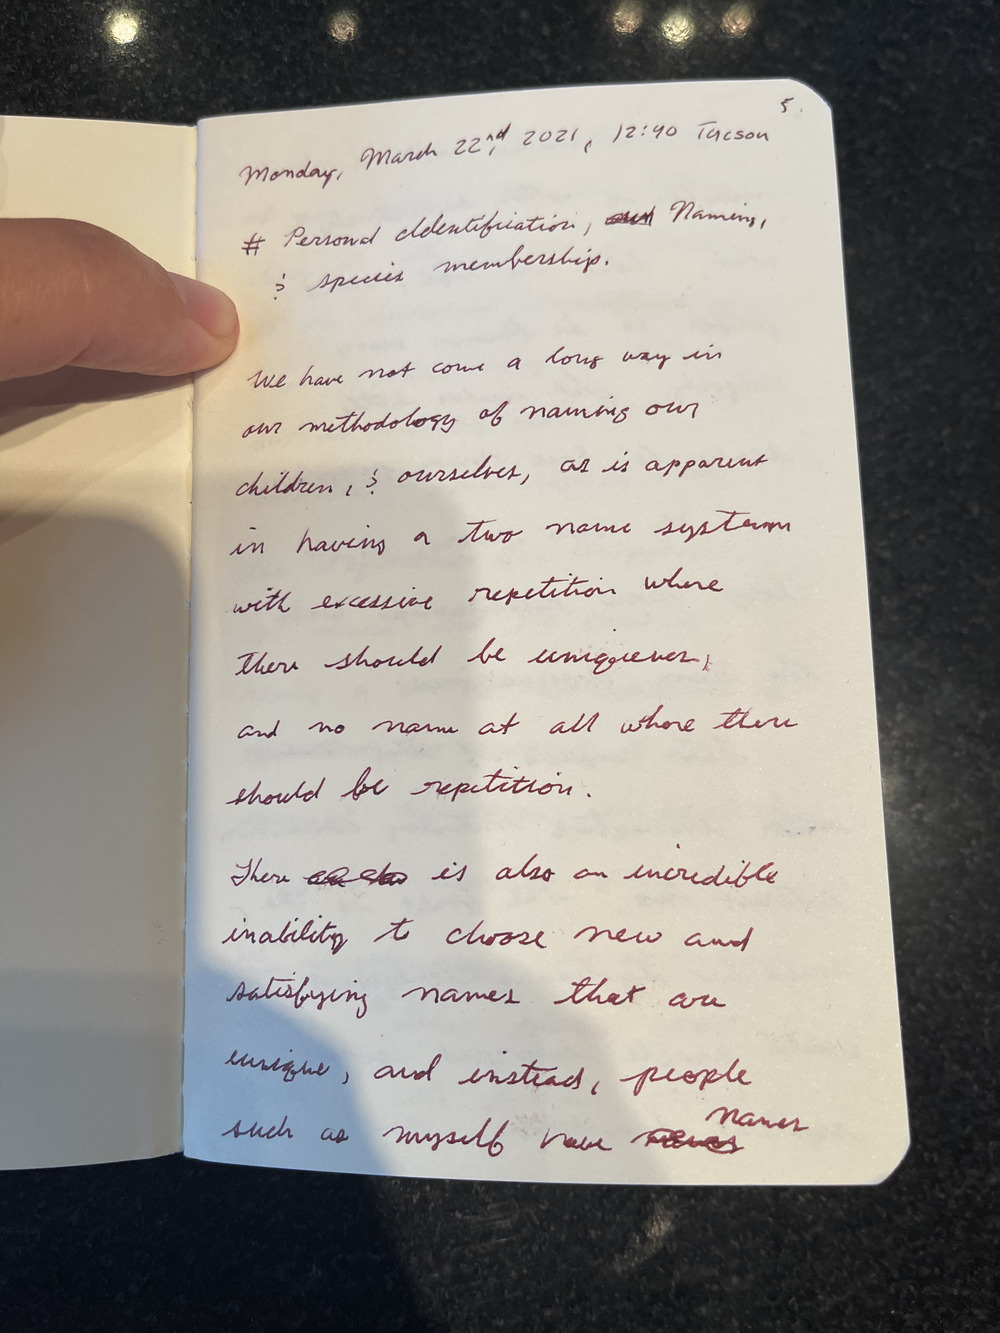 5.
Monday, March 22nd, 2021, 12:40 Tucson
# Personal Identification, Naming,
& species membership.
We have not come a long way in
our methodology of naming our
children, & ourselves, as is apparent
in having a two name system
with excessive repetition where
there should be uniqueness,
and no name at all where there
should be repetition.
There is also an incredible
inability to choose new and
satisfying names that are
unique, and instead, people
such as myself have names